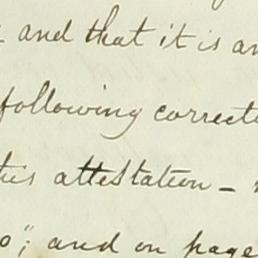 and that it is an
following correct
this attestation –
o"; and on page